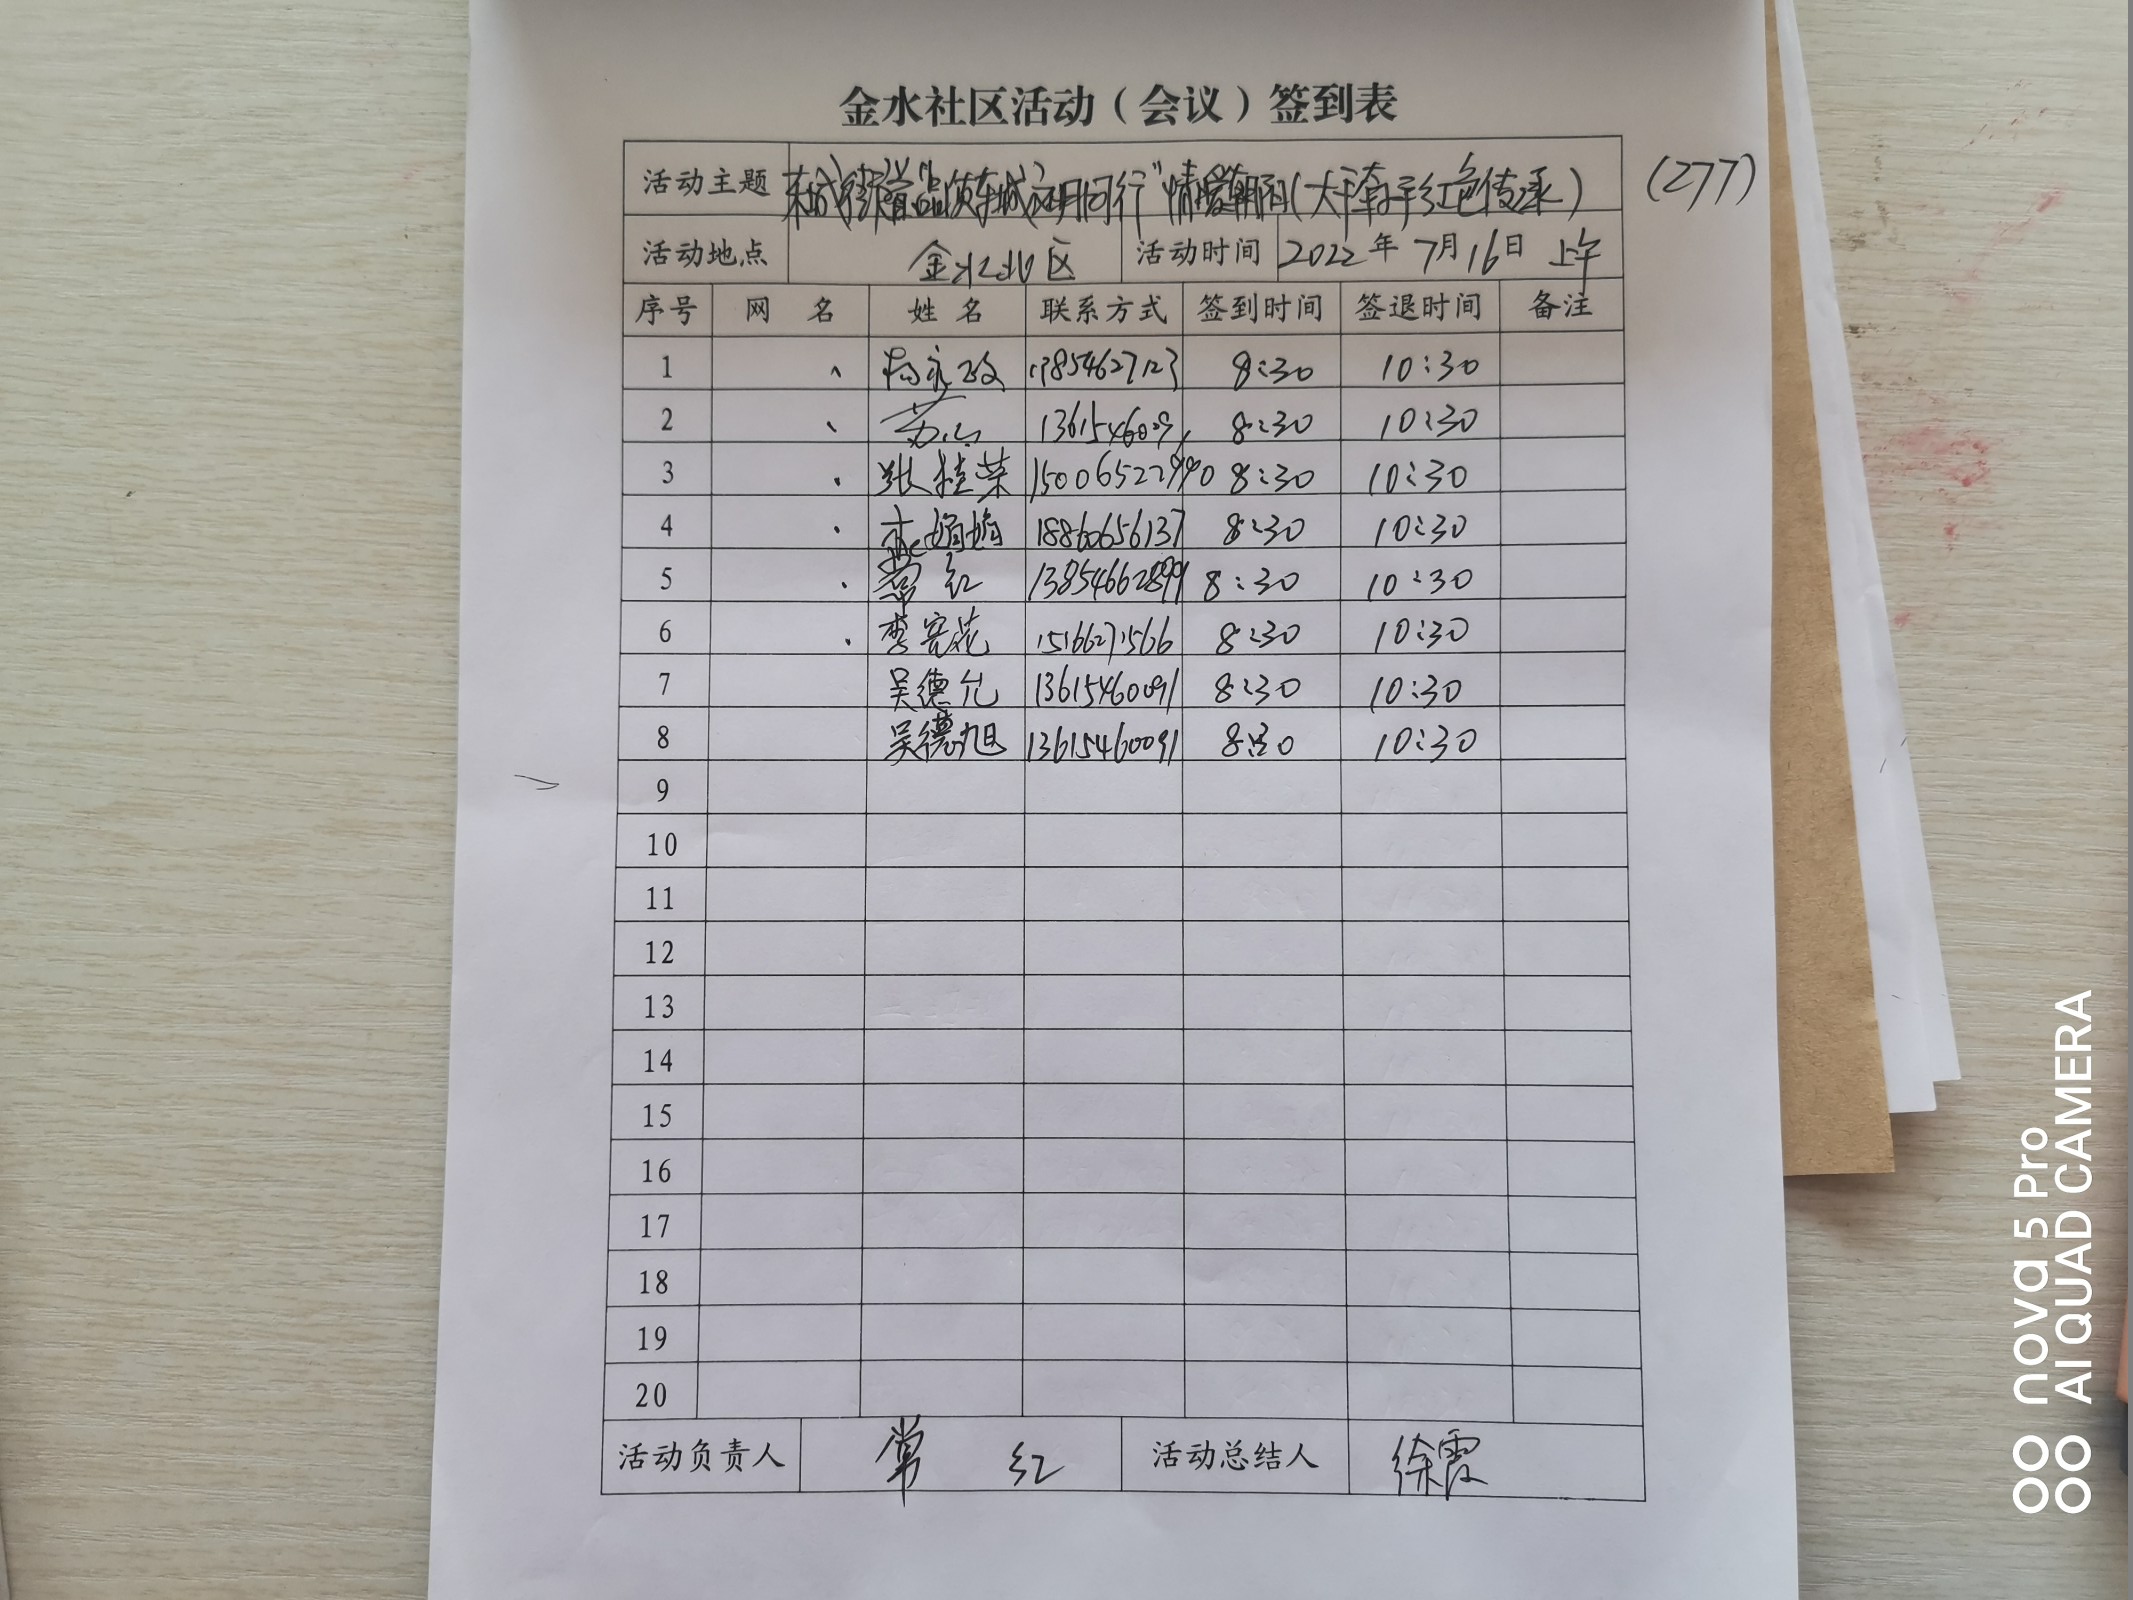 金水社区活动（会议）签到表
活动主题 东城街道"品质东城文明同行"情暖朝阳(大手牵小手红色传承) (277)
活动地点 金水北区 活动时间 2022年7月16日 上午
序号 网 名 姓 名 联系方式 签到时间 签退时间 备注
1 杨永政 13854627123 8:30 10:30
2 苏 8:30 10:30
3 张桂荣 15006522990 8:30 10:30
4 娟娟 18860656137 8:30 10:30
5 常红 13854662899 8:30 10:30
6 李客花 15166271566 8:30 10:30
7 吴德允 13615460091 8:30 10:30
8 吴德旭 13615460091 8:30 10:30
9
10
11
12
13
14
15
16
17
18
19
20
活动负责人 常 红 活动总结人 徐霞
nova 5 Pro
AI QUAD CAMERA